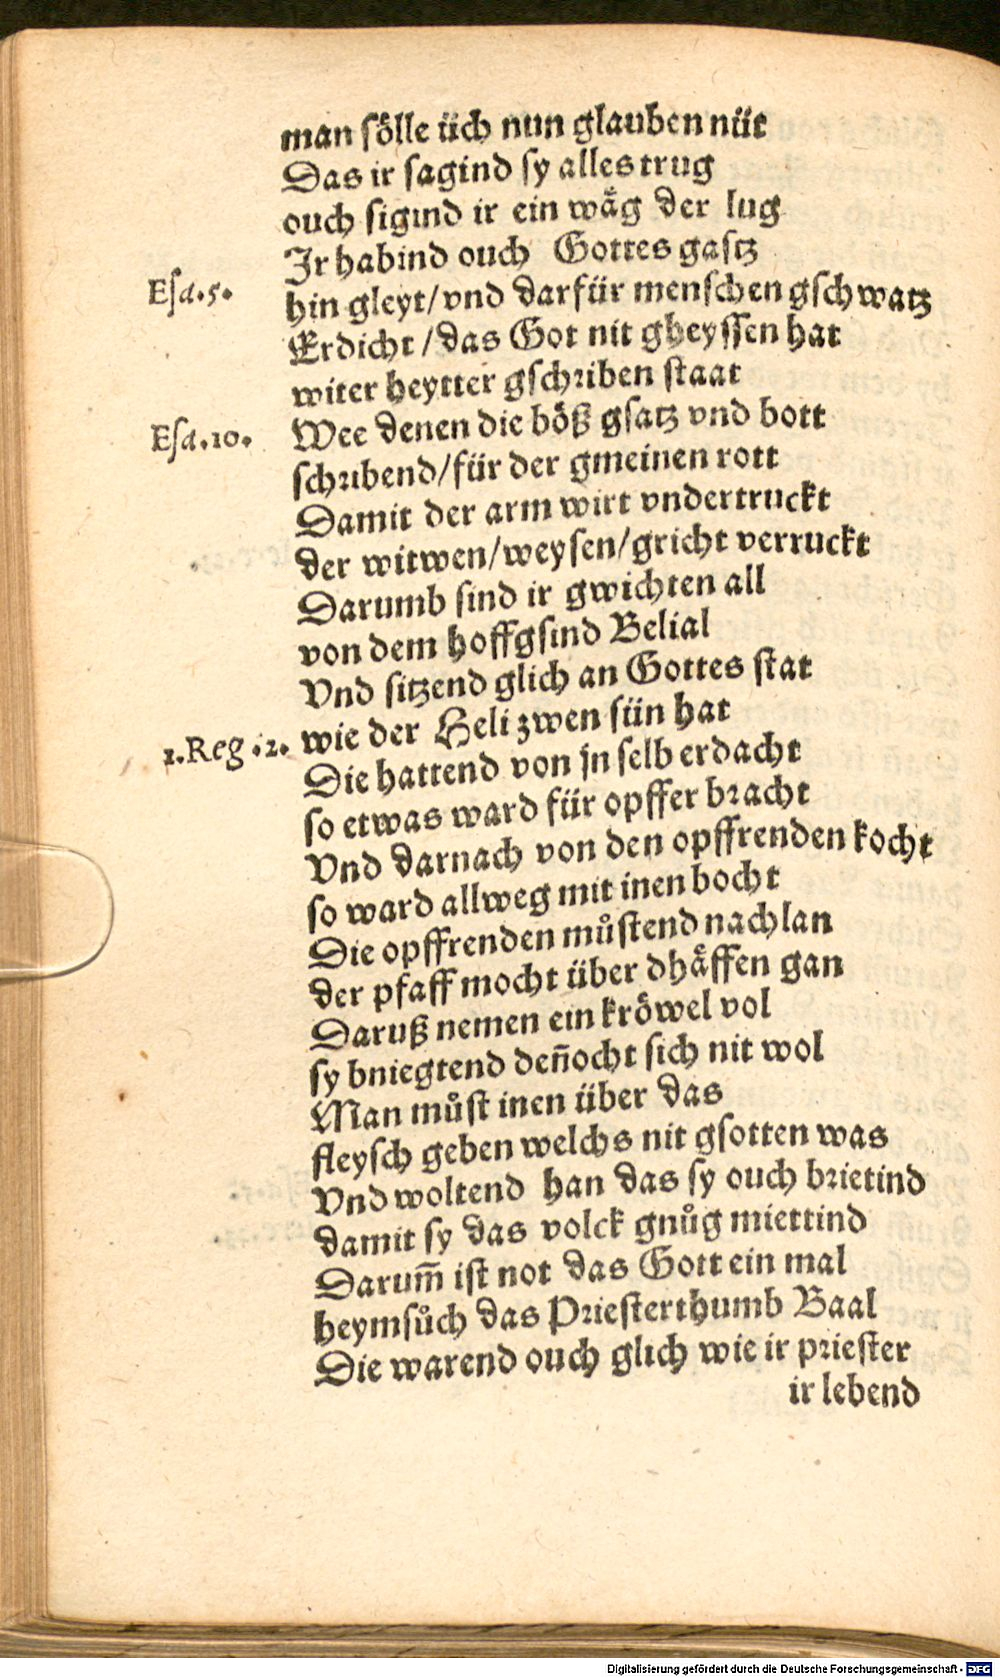 man sölle üch nun glauben nüt
Das ir sagind sy alles trug
ouch sigind ir ein wäg der lug
Ir habind ouch Gottes gastz
Esa.5. hin gleyt/vnd darfür menschen gschwatz
Erdicht/das Got nit gheyssen hat
witer heytter gschriben staat
Esa.10. Wee denen die böß gsatz vnd bott
schribend/für der gmeinen rott
Damit der arm wirt vndertruckt
der witwen/weysen/gricht verruckt
Darumb sind ir gwichten all
von dem hoffgsind Belial
Vnd sitzend glich an Gottes stat
1.Reg.2. wie der Heli zwen sün hat
Die hattend von jn selb erdacht
so etwas ward für opffer bracht
Vnd darnach von den opffrenden kocht
so ward allweg mit inen bocht
Die opffrenden můstend nachlan
der pfaff mocht über dhäffen gan
Daruß nemen ein kröwel vol
sy bniegtend deñocht sich nit wol
Man můst inen über das
fleysch geben welchs nit gsotten was
Vnd woltend han das sy ouch brietind
damit sy das volck gnůg miettind
Darum̄ ist not das Gott ein mal
heymsůch das Priesterthumb Baal
Die warend ouch glich wie ir priester
ir lebend
Digitalisierung gefördert durch die Deutsche Forschungsgemeinschaft - DFG